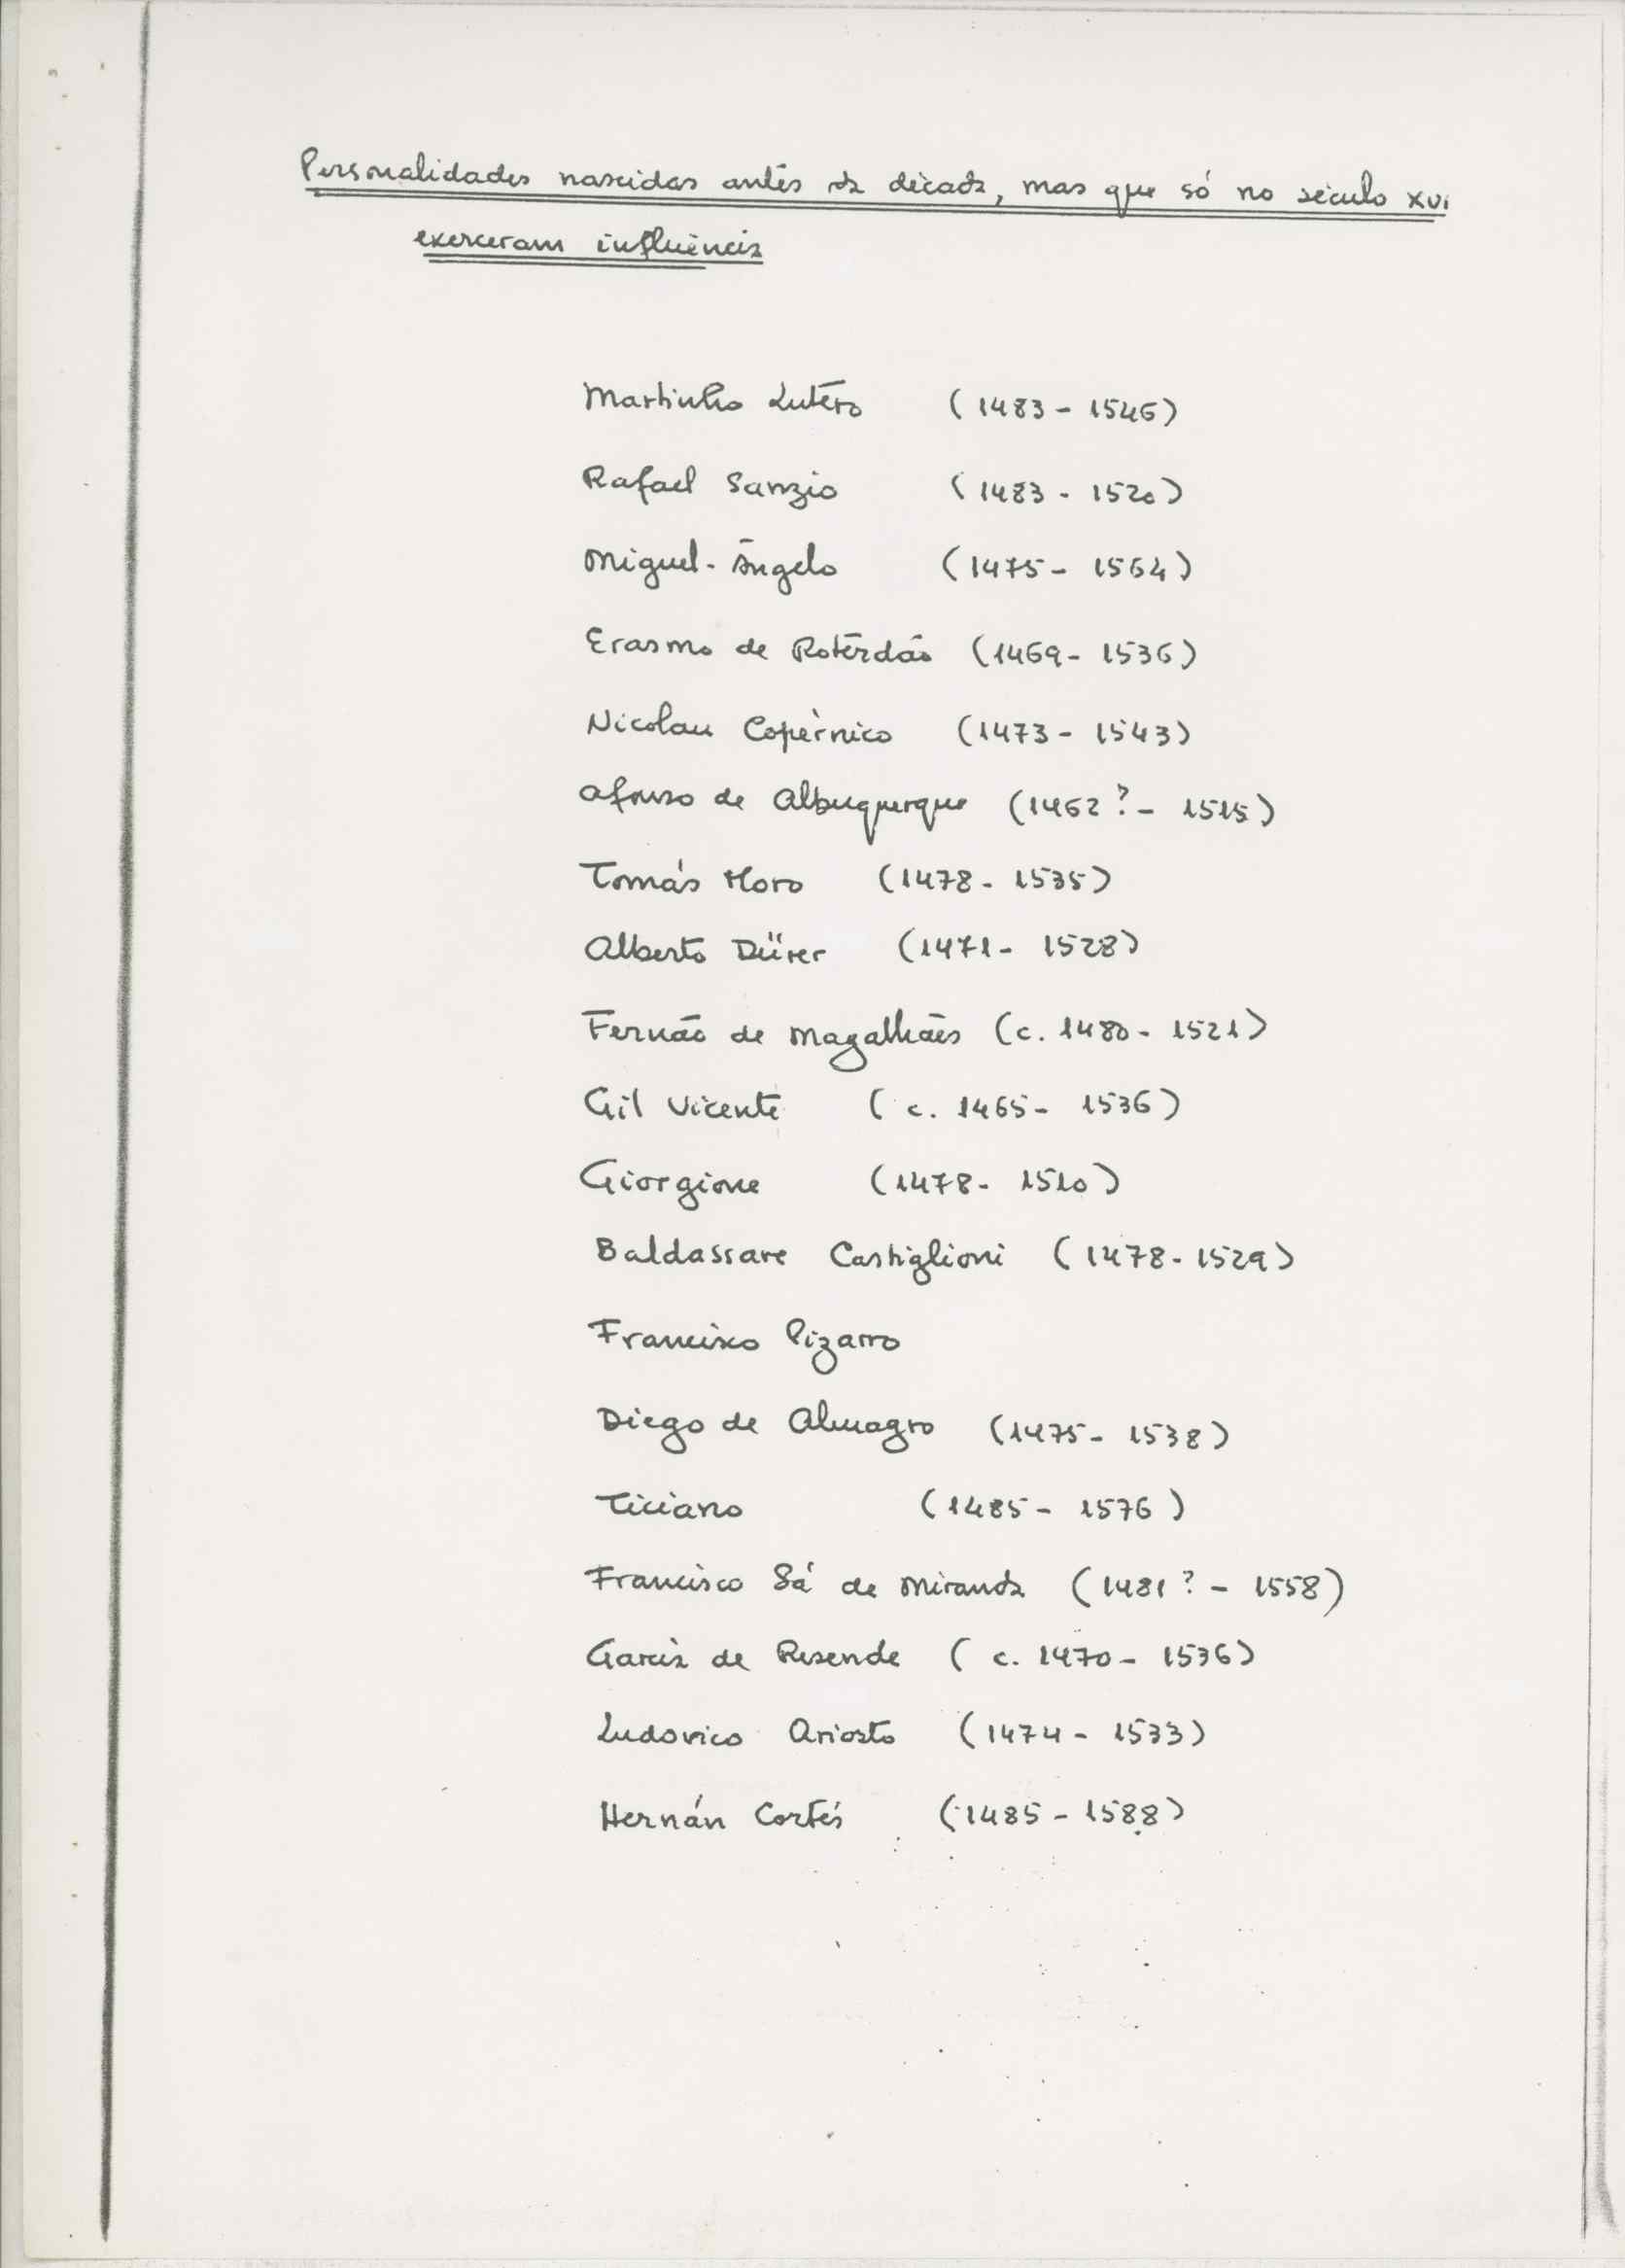 Personalidades nascidas antes da década, mas que só no século XVI
exerceram influência
Martinho Lutero (1483 - 1546)
Rafael Sanzio (1483 - 1520)
Miguel-Ângelo (1475 - 1564)
Erasmo de Roterdão (1469 - 1536)
Nicolau Copérnico (1473 - 1543)
Afonso de Albuquerque (1462? - 1515)
Tomás Moro (1478 - 1535)
Alberto Dürer (1471 - 1528)
Fernão de Magalhães (c. 1480 - 1521)
Gil Vicente (c. 1465 - 1536)
Giorgione (1478 - 1510)
Baldassare Castiglioni (1478 - 1529)
Francisco Pizarro
Diego de Almagro (1475 - 1538)
Ticiano (1485 - 1576)
Francisco Sá de Miranda (1481? - 1558)
Garcia de Resende (c. 1470 - 1536)
Ludovico Ariosto (1474 - 1533)
Hernán Cortés (1485 - 1588)